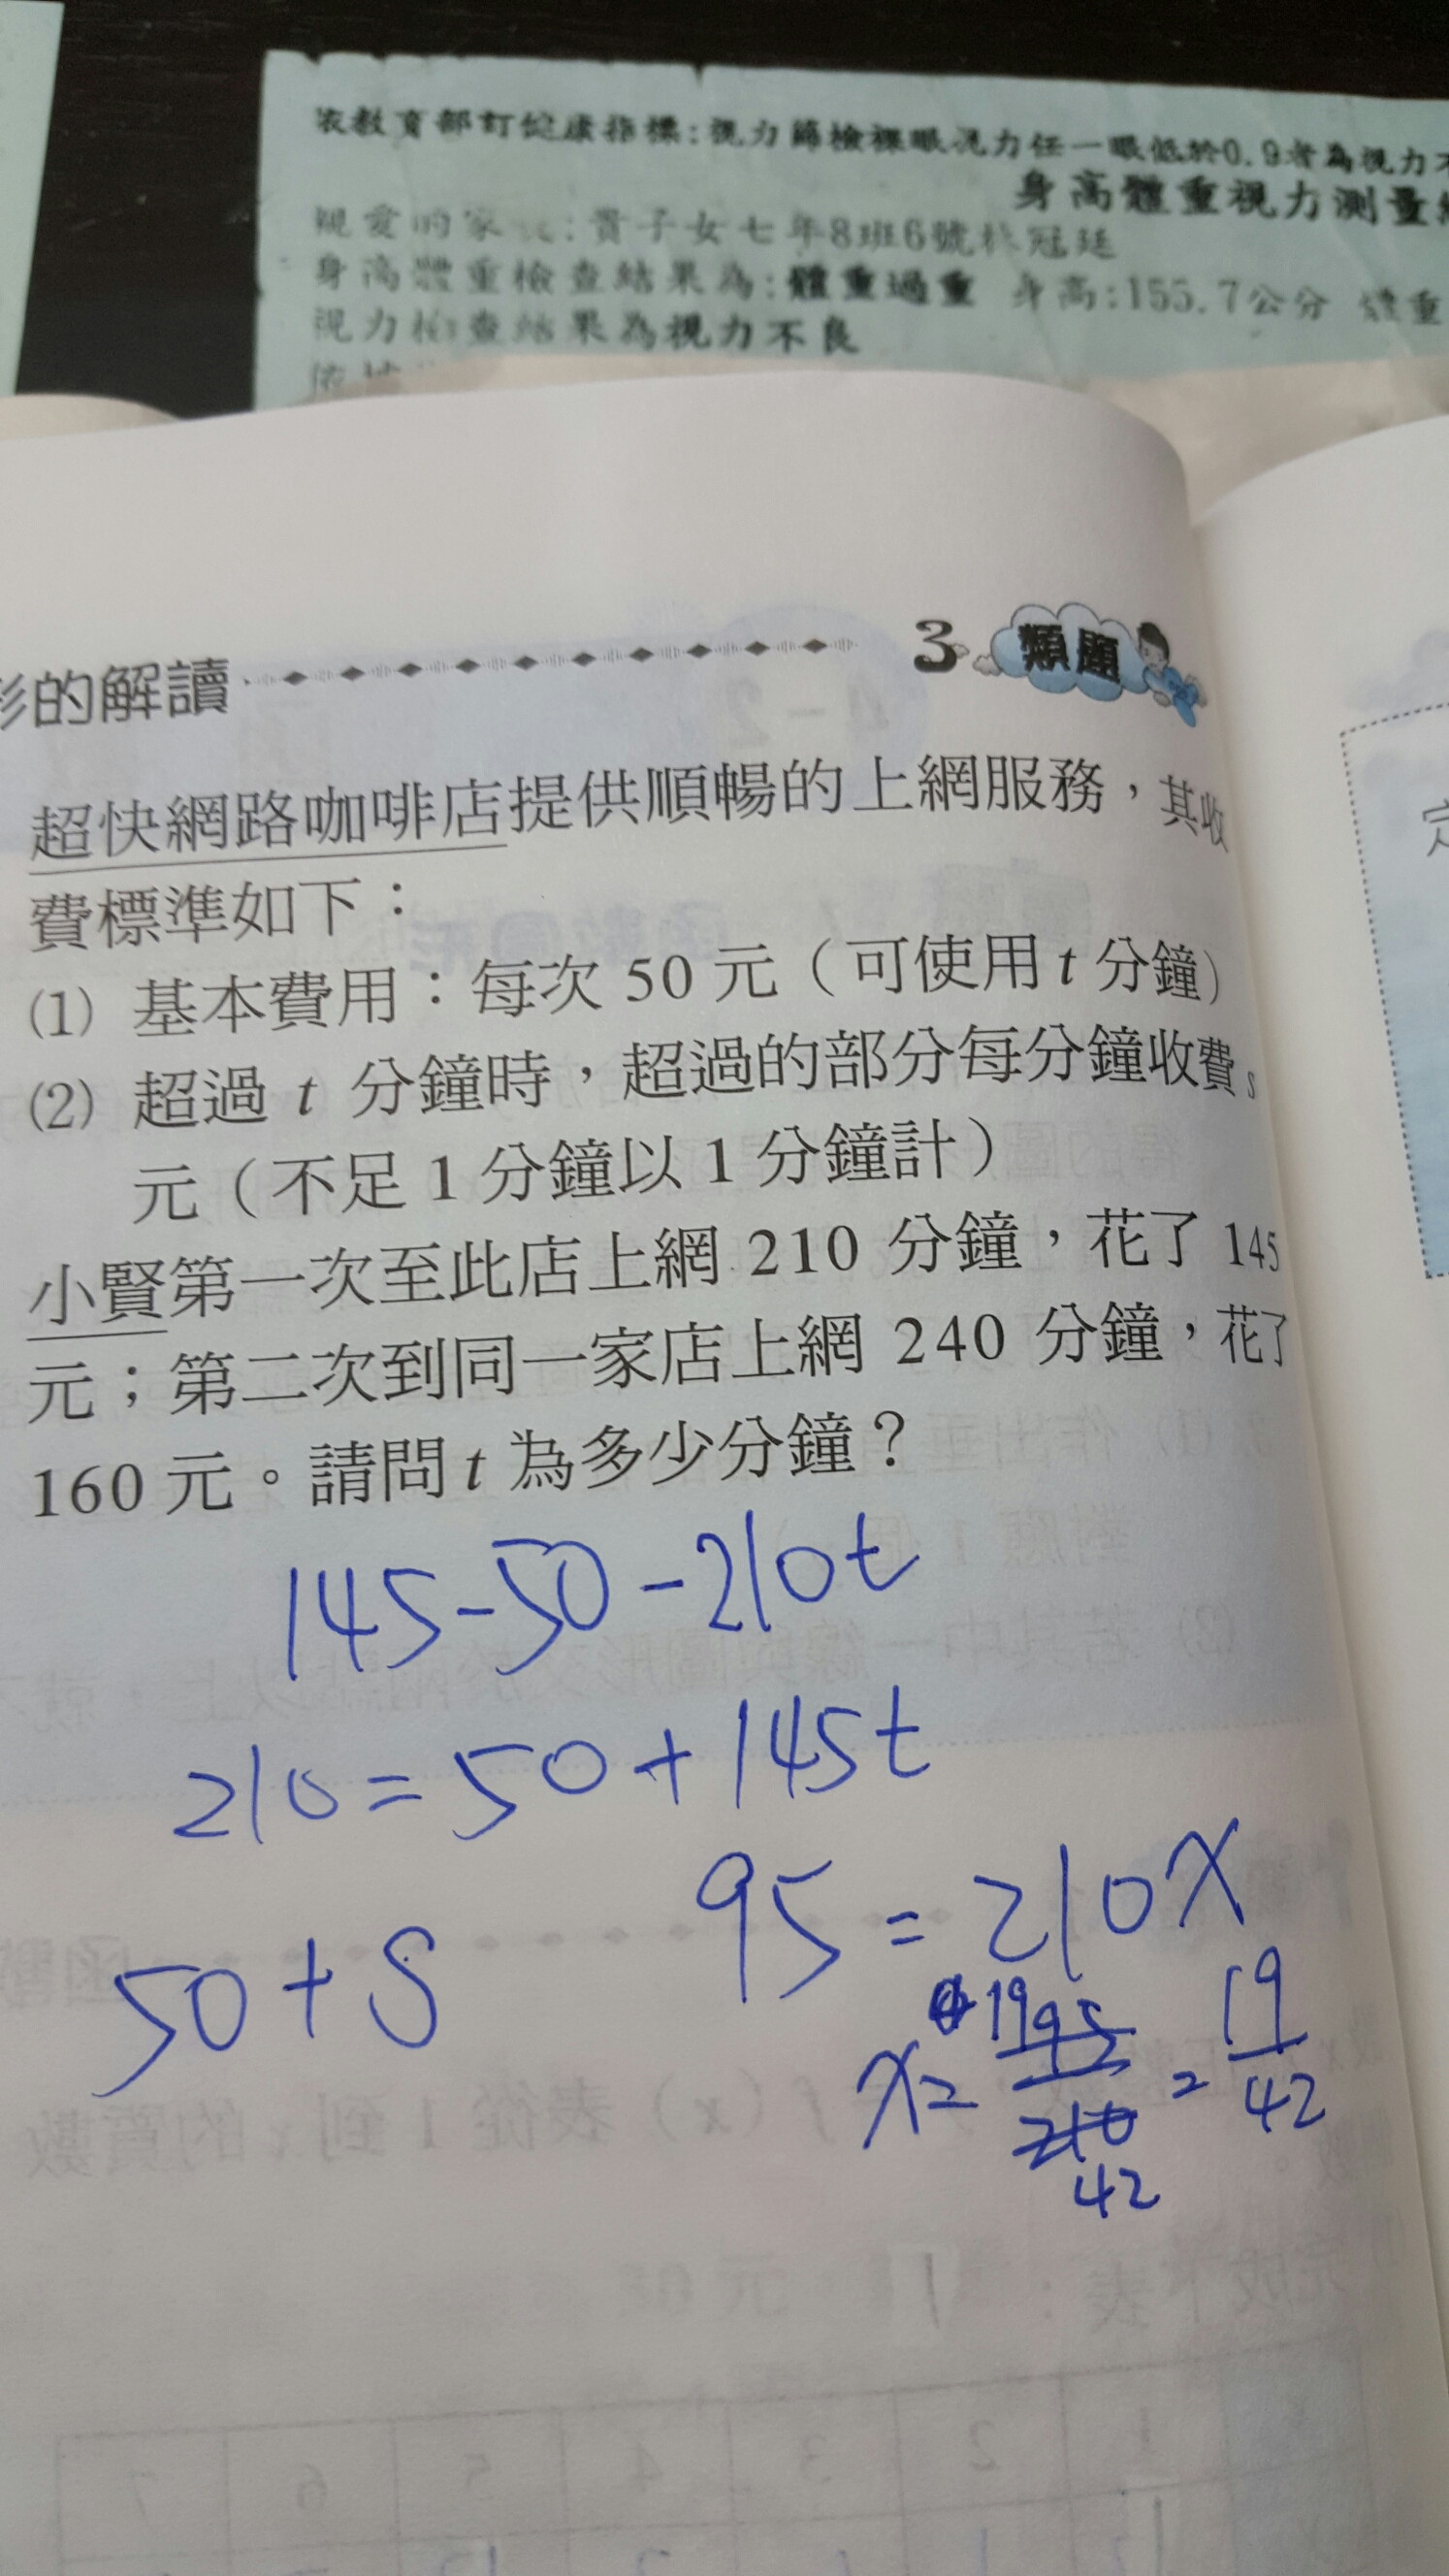 依教育部訂健康指標:視力篩檢裸眼視力任一眼低於0.9者為視力不
身高體重視力測量
親愛的家 :貴子女七年8班6號林冠廷
身高體重檢查結果為:體重過重 身高:155.7公分 體重
視力檢查結果為視力不良
的解讀
3 類題
超快網路咖啡店提供順暢的上網服務,其收
費標準如下:
(1) 基本費用:每次 50 元(可使用 t 分鐘)
(2) 超過 t 分鐘時,超過的部分每分鐘收費 s
元(不足 1 分鐘以 1 分鐘計)
小賢第一次至此店上網 210 分鐘,花了 145
元;第二次到同一家店上網 240 分鐘,花了
160 元。請問 t 為多少分鐘?
145-50-210t
210=50+145t
95=210x
50+S
x= 19 95 / 210 42 = 19/42
定